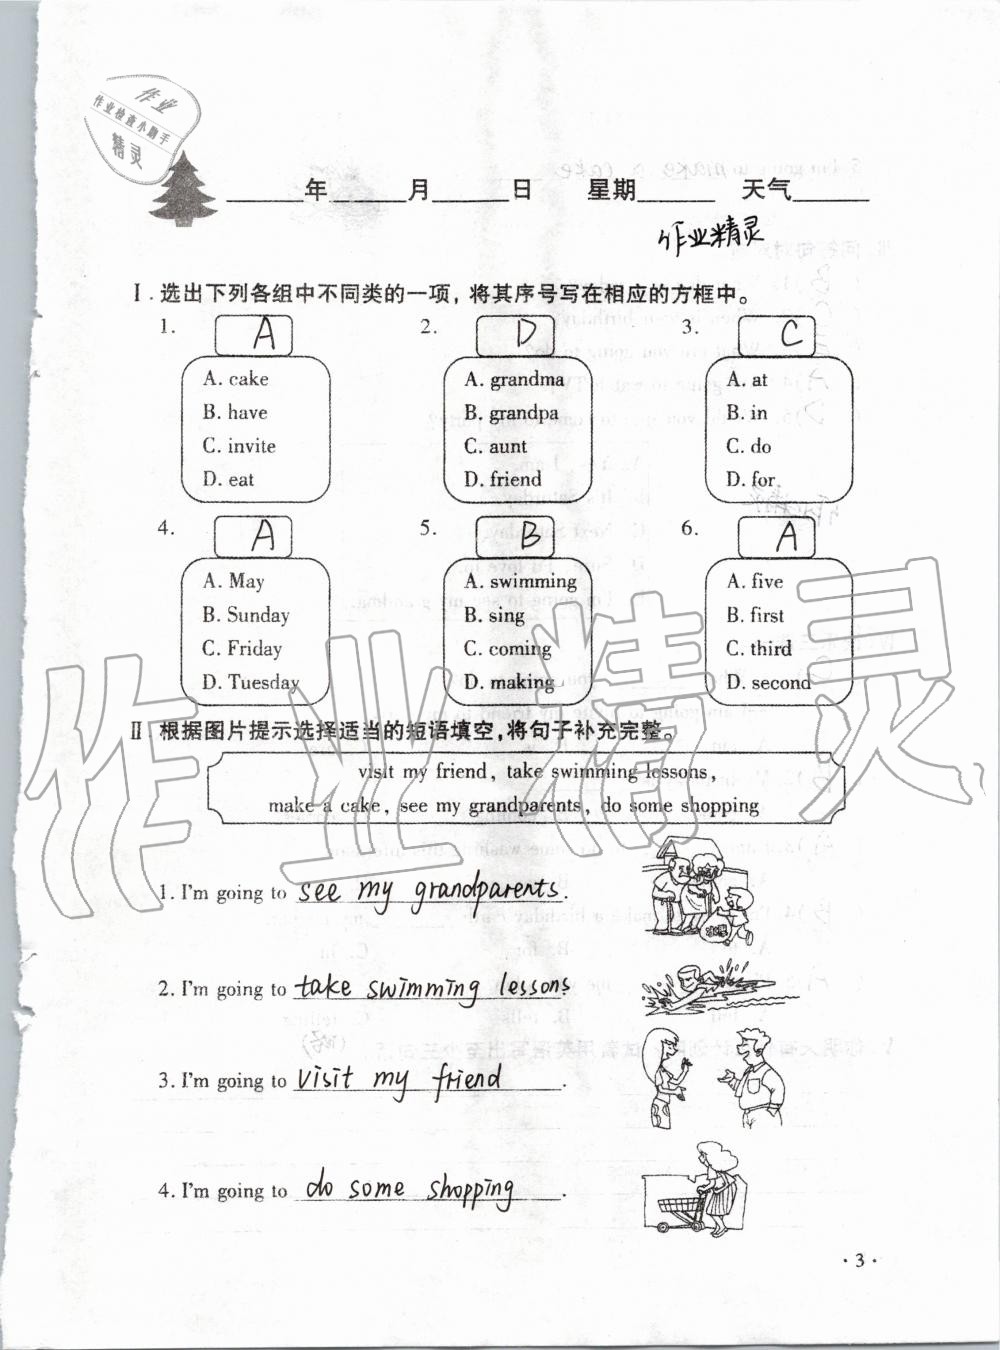 作业
作业检查小助手
精灵
______年______月______日 星期______ 天气______
作业精灵
Ⅰ. 选出下列各组中不同类的一项，将其序号写在相应的方框中。
1. A 2. D 3. C
A. cake A. grandma A. at
B. have B. grandpa B. in
C. invite C. aunt C. do
D. eat D. friend D. for
4. A 5. B 6. A
A. May A. swimming A. five
B. Sunday B. sing B. first
C. Friday C. coming C. third
D. Tuesday D. making D. second
Ⅱ. 根据图片提示选择适当的短语填空，将句子补充完整。
visit my friend, take swimming lessons,
make a cake, see my grandparents, do some shopping
1. I'm going to see my grandparents.
水果
2. I'm going to take swimming lessons
3. I'm going to visit my friend.
4. I'm going to do some shopping.
· 3 ·
作业精灵